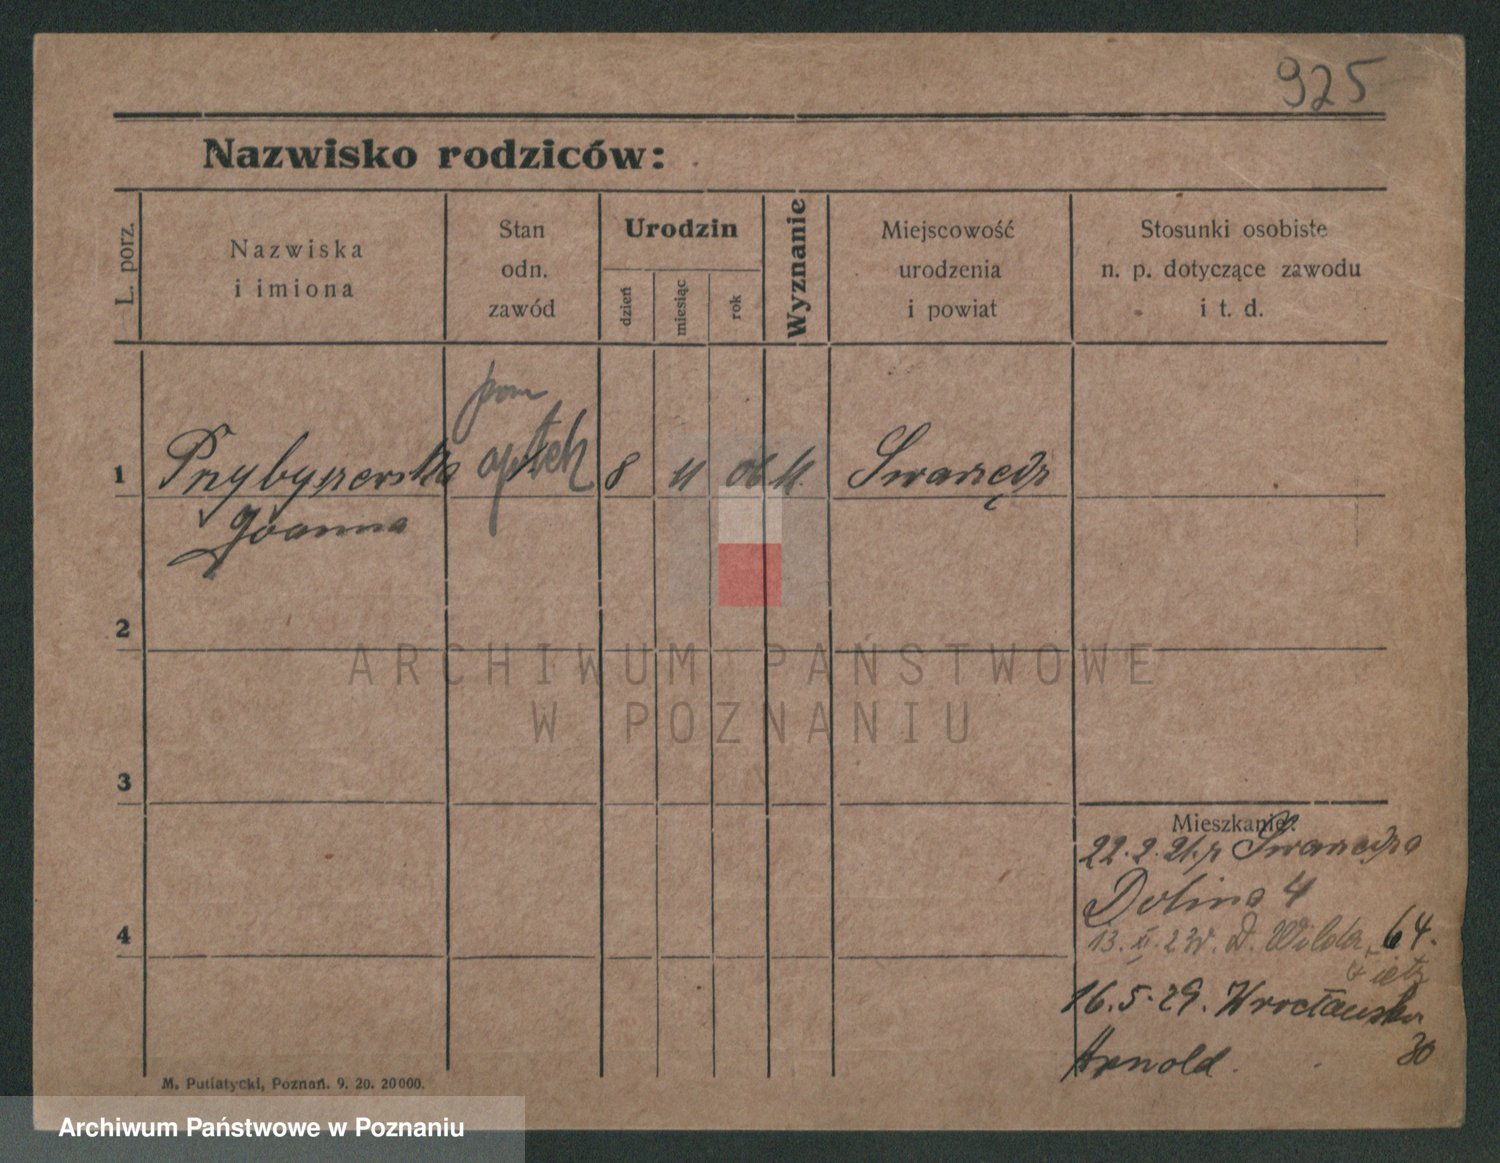 925
Nazwisko rodziców:
L. porz.
Nazwiska
i imiona
Stan
odn.
zawód
Urodzin
dzień
miesiąc
rok
Wyznanie
Miejscowość
urodzenia
i powiat
Stosunki osobiste
n. p. dotyczące zawodu
i t. d.
pom
aptek
1 Przybyszewska 8 11 06 k. Swarzędz
Joanna
2
ARCHIWUM PAŃSTWOWE
W POZNANIU
3
Mieszkanie:
22.2.21. z Swarzędza
Dolina 4
4
13. XI. 23 Wilda 64.
16.5.29. Wrocławska
30
Arnold.
M. Putiatycki, Poznań. 9. 20. 20000.
Archiwum Państwowe w Poznaniu